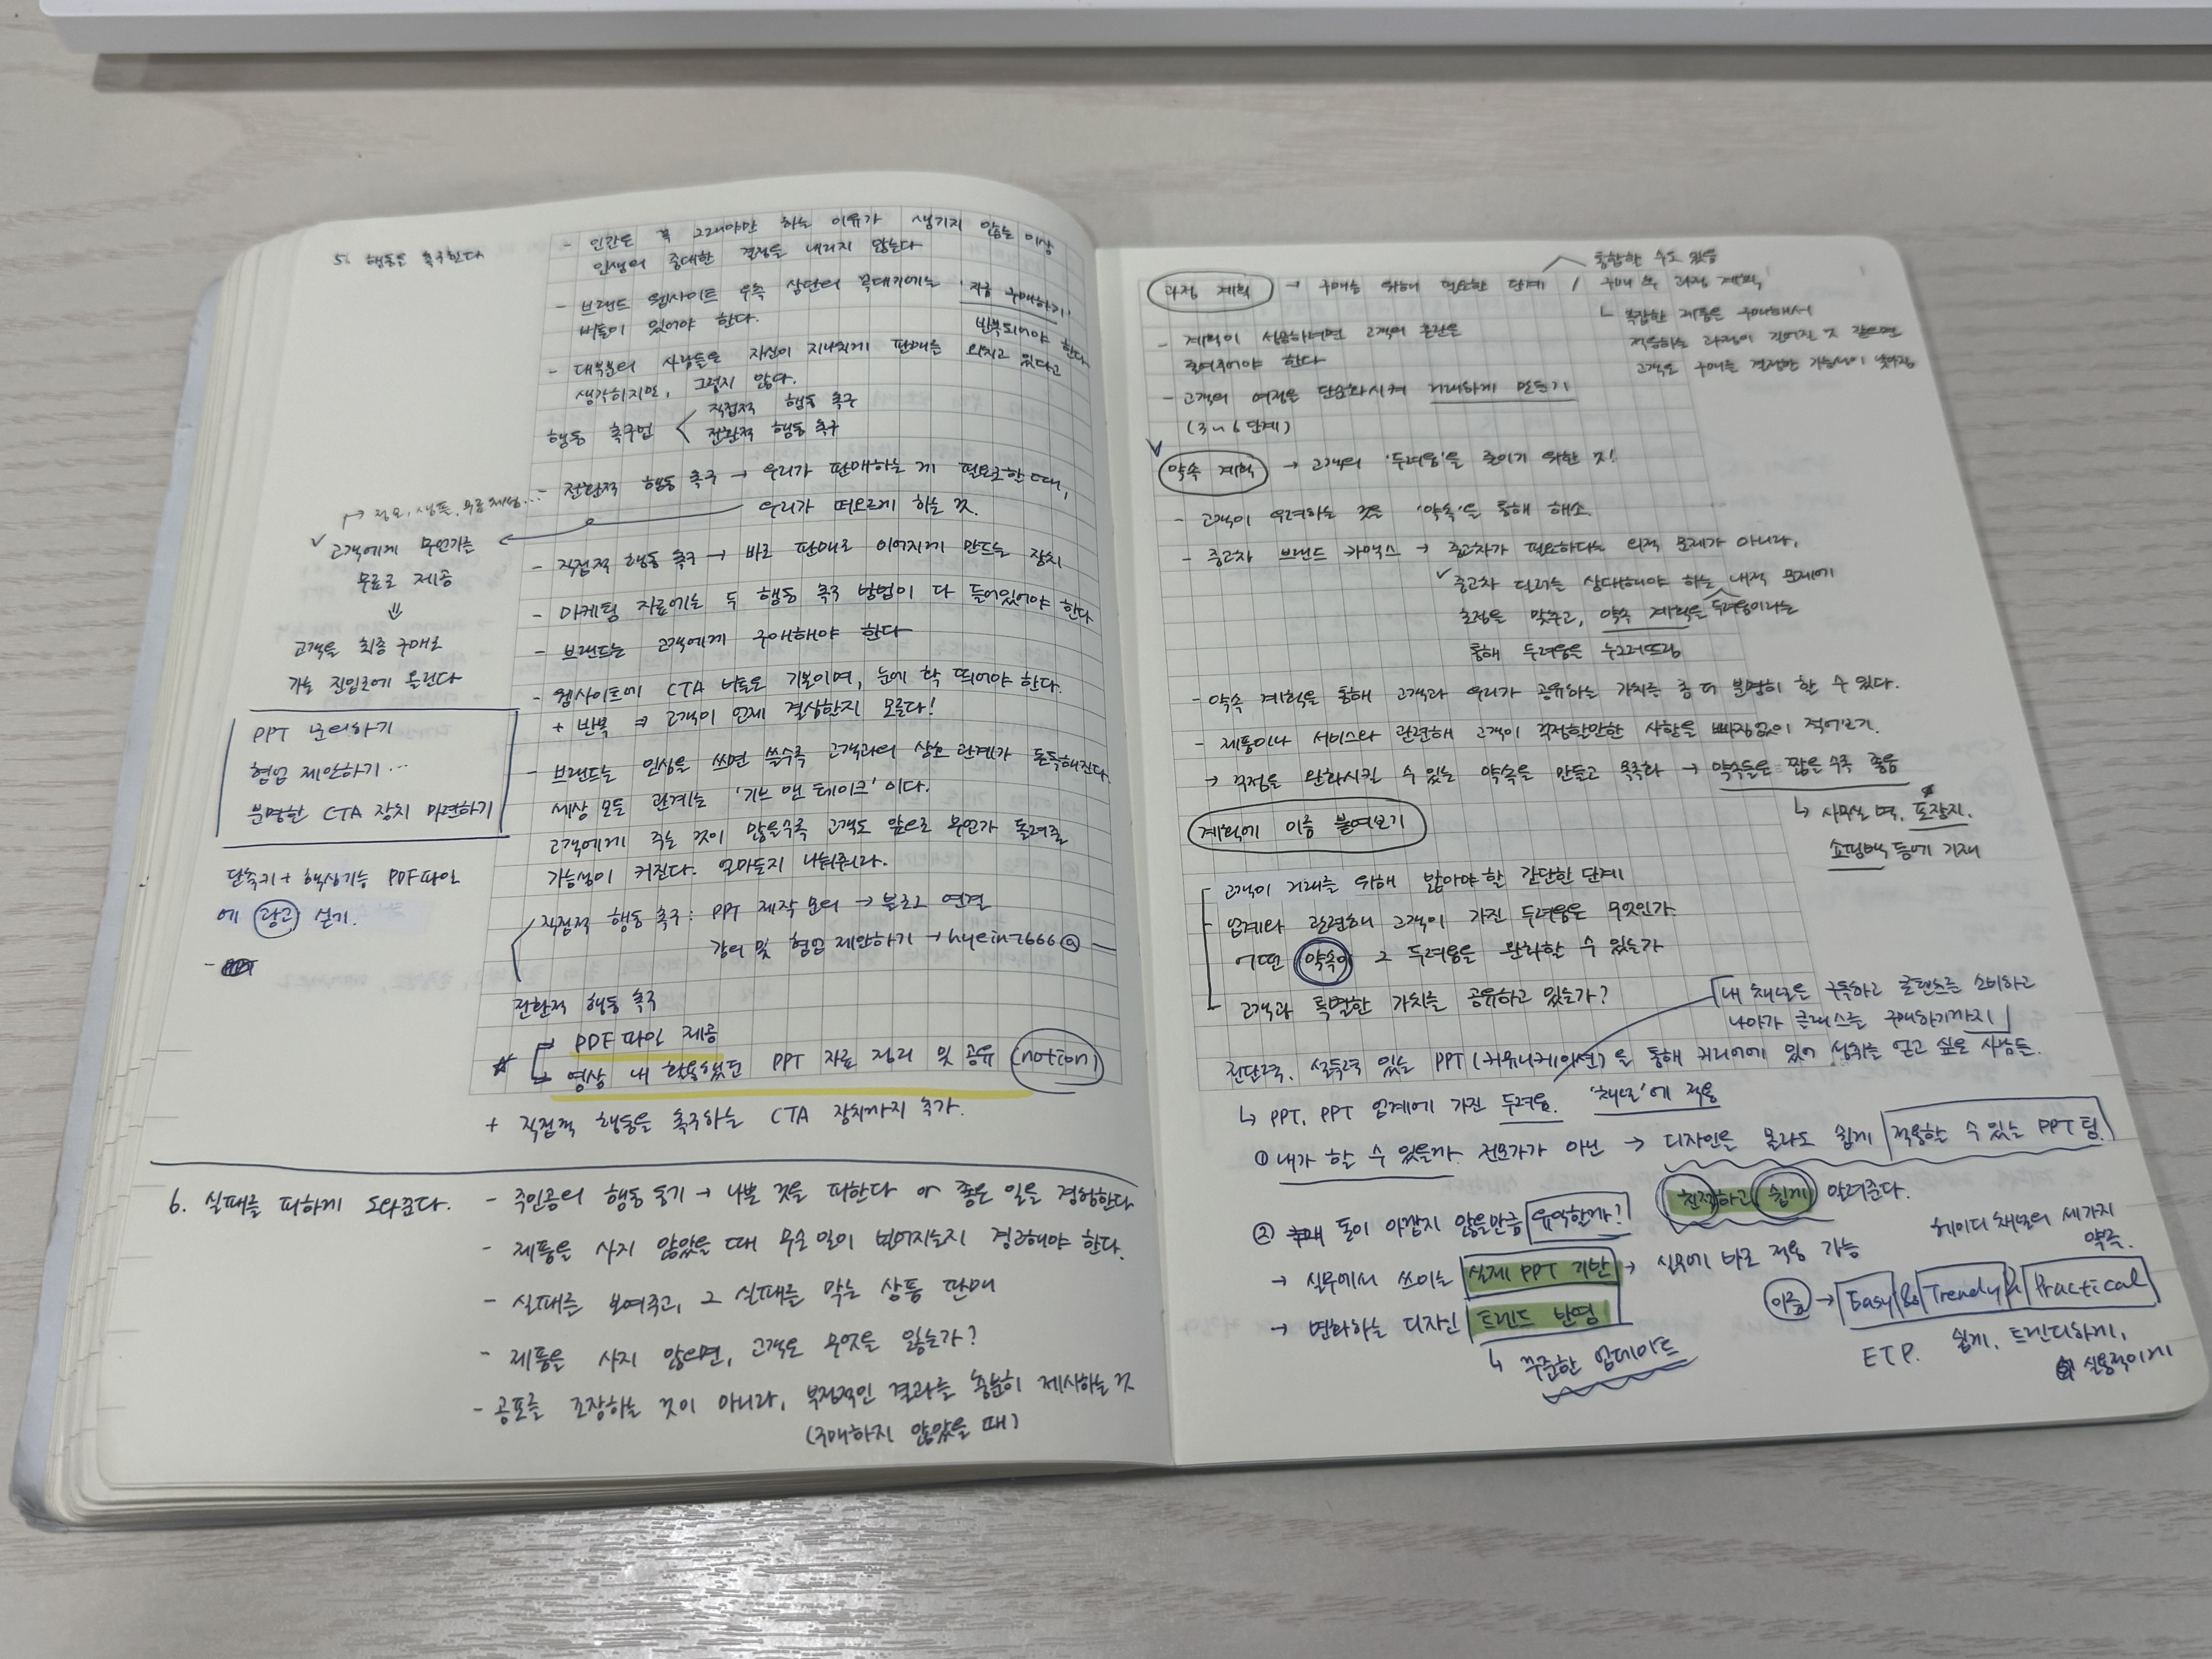 5. 행동을 촉구한다
- 인간은 꼭 그래야만 하는 이유가 생기지 않는 이상
인생의 중대한 결정을 내리지 않는다
- 브랜드 웹사이트 우측 상단의 꼭대기에는 '지금 구매하기'
버튼이 있어야 한다.
반복되어야 한다
- 대부분의 사람들은 자신이 지나치게 판매를 외치고 있다고
생각하지만, 그렇지 않다.
행동 촉구법 < 직접적 행동 촉구
전환적 행동 촉구
- 전환적 행동 촉구 → 우리가 판매하는 게 필요할 때,
우리가 떠오르게 하는 것.
↱ 정보, 샘플, 무료체험...
✓ 고객에게 무언가를
무료로 제공
⇓
고객을 최종 구매로
가는 진입로에 올린다
- 직접적 행동 촉구 → 바로 판매로 이어지게 만드는 장치
- 마케팅 자료에는 두 행동 촉구 방법이 다 들어있어야 한다
- 브랜드는 고객에게 구애해야 한다
- 웹사이트에 CTA 버튼은 기본이며, 눈에 확 띄어야 한다.
+ 반복 ⇒ 고객이 언제 결심할지 모른다!
- 브랜드는 인심을 쓰면 쓸수록 고객과의 상호 관계가 돈독해진다.
세상 모든 관계는 '기브 앤 테이크'이다.
고객에게 주는 것이 많을수록 고객도 앞으로 무언가 돌려줄
가능성이 커진다. 얼마든지 나눠줘라.
PPT 문의하기
협업 제안하기...
분명한 CTA 장치 마련하기
단축키 + 핵심기능 PDF파일
에 광고 싣기.
직접적 행동 촉구: PPT 제작 문의 → 블로그 연결
강의 및 협업 제안하기 → hyein7666@
전환적 행동 촉구
☆ → PDF 파일 제공
→ 영상 내 활용했던 PPT 자료 정리 및 공유 (notion)
+ 직접적 행동을 촉구하는 CTA 장치까지 추가.
6. 실패를 피하게 도와준다.
- 주인공의 행동 동기 → 나쁜 것을 피한다 or 좋은 일을 경험한다
- 제품을 사지 않았을 때 무슨 일이 벌어지는지 경고해야 한다.
- 실패를 보여주고, 그 실패를 막는 상품 판매
- 제품을 사지 않으면, 고객은 무엇을 잃는가?
- 공포를 조장하는 것이 아니라, 부정적인 결과를 충분히 제시하는 것
(구매하지 않았을 때)
통합할 수도 있음
과정 계획 → 구매를 위해 필요한 단계 / 구매 후 과정 계획
↳ 복잡한 제품을 구매해서
적응하는 과정이 길어질 것 같으면
고객은 구매를 결정할 가능성이 낮아짐
- 계획이 성공하려면 고객의 혼란을
줄여주어야 한다
- 고객의 여정을 단순화시켜 거래하게 만들기
(3~6단계)
✓ 약속 계획 → 고객의 '두려움'을 줄이기 위한 것!
- 고객이 우려하는 것을 '약속'을 통해 해소.
- 중고차 브랜드 카맥스 → 중고차가 필요하다는 외적 문제가 아니라,
✓ 중고차 딜러를 상대해야 하는 내적 문제에
두려움이라는
초점을 맞추고, 약속 계획을
통해 두려움을 누그러뜨림
- 약속 계획을 통해 고객과 우리가 공유하는 가치를 좀 더 분명히 할 수 있다.
- 제품이나 서비스와 관련해 고객이 걱정할만한 사항을 빠짐없이 적어보기.
→ 걱정을 완화시킬 수 있는 약속을 만들고 목록화 → 약속들은 짧을수록 좋음
↳ 사무실 벽, 포장지,
쇼핑백 등에 기재
계획에 이름 붙여보기
고객이 거래를 위해 밟아야 할 간단한 단계
업계와 관련해 고객이 가진 두려움은 무엇인가
어떤 약속이 그 두려움을 완화할 수 있는가
고객과 특별한 가치를 공유하고 있는가?
내 채널을 구독하고 콘텐츠를 소비하고
나아가 클래스를 구매하기까지
전달력, 설득력 있는 PPT(커뮤니케이션)을 통해 커리어에 있어 성취를 얻고 싶은 사람들.
↳ PPT, PPT 업계에 가진 두려움. '채널'에 적용
① 내가 할 수 있을까 전문가가 아닌 → 디자인을 몰라도 쉽게 적용할 수 있는 PPT 팁.
친절하고 쉽게 알려준다.
② 돈이 아깝지 않을만큼 유익할까?
→ 실무에서 쓰이는 실제 PPT 기반 → 실무에 바로 적용 가능
→ 변화하는 디자인 트렌드 반영
↳ 꾸준한 업데이트
헤이디 채널의 세가지
약속.
이름 → Easy & Trendy & Practical
ETP. 쉽게, 트렌디하게,
실용적이게